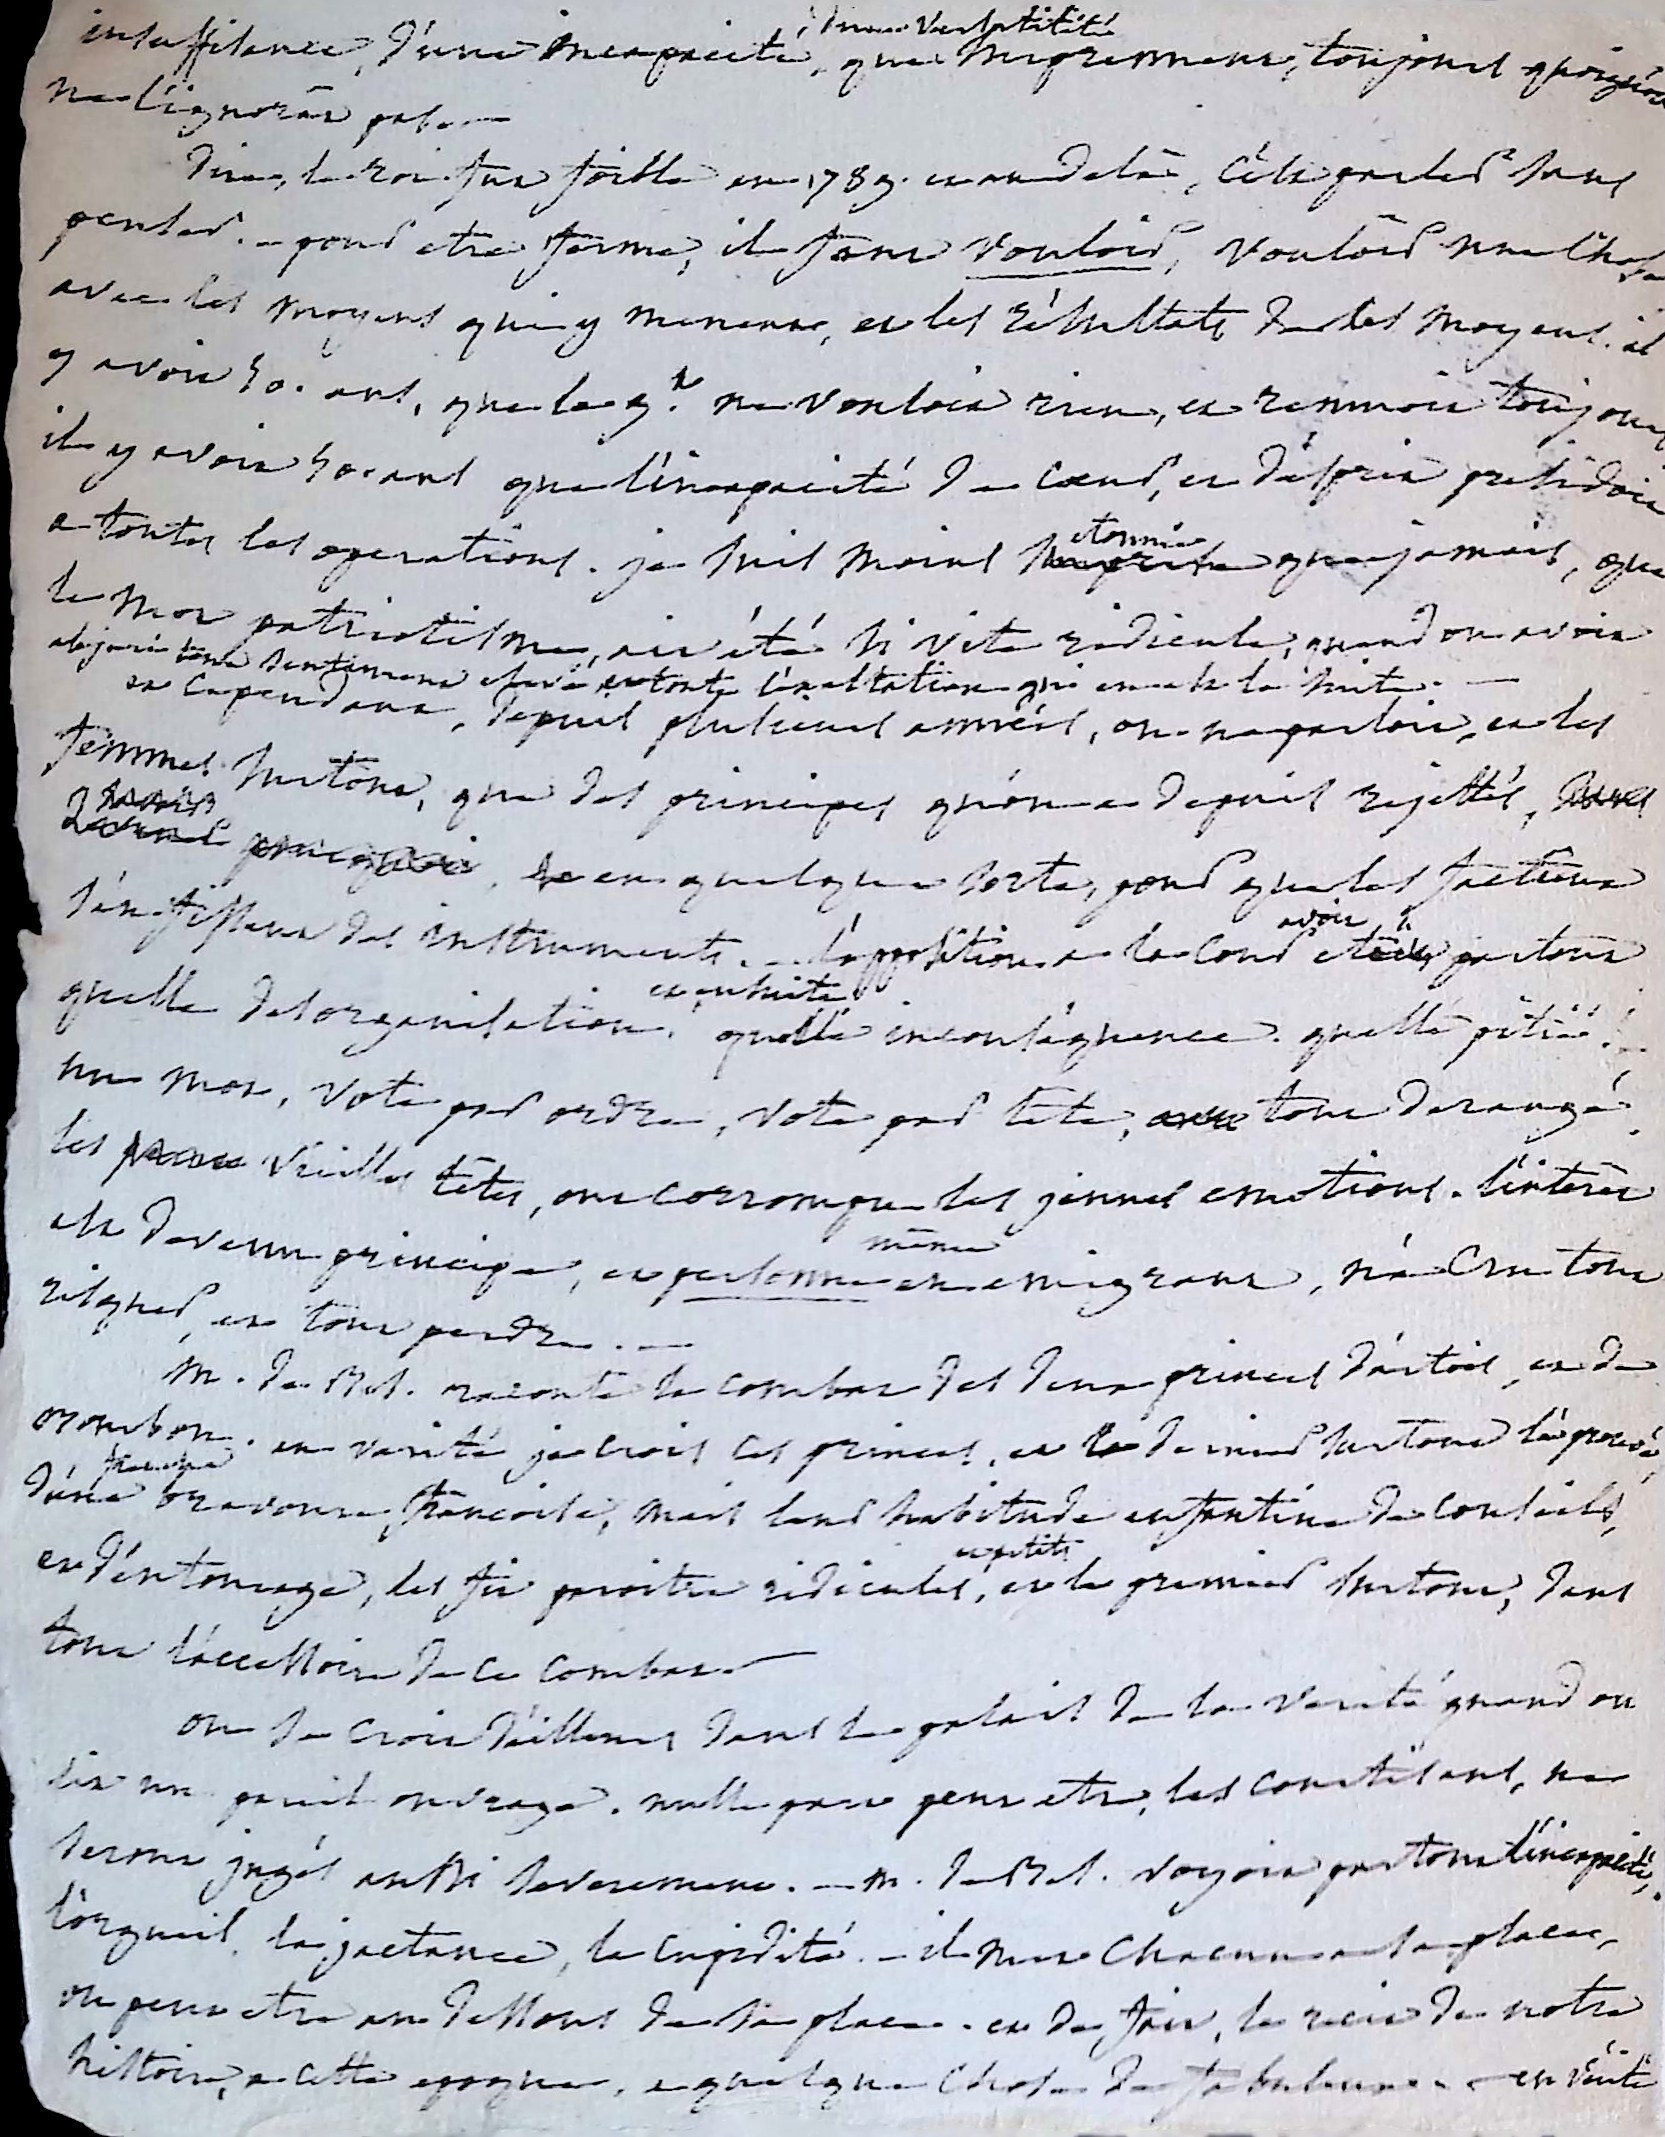 insuffisance, d'une incapacité, d'une versatilité, que surprennent, toujours quoiqu'on
ne l'ignorât pas. —
Dire, le roi fut foible en 1789. et au delà, c'est parler sans
penser. — pour etre ferme, il faut vouloir, vouloir une chose
avec les moyens qui y menent, et les résultats de ces moyens. il
y avoit 30. ans, que le g.t ne vouloit rien, et remuoit toujours
il y avoit 30. ans que l'incapacité de cœur, et d'esprit présidoit
a toutes les operations. je suis moins surprise etonnée que jamais, que
le mot patriotisme, ait été si vite ridicule, quand on avoit
abjuré tout sentiment elevé et toute l'exaltation qui en est la suite. —
et cependant, depuis plusieurs années, on ne parloit, et les
femmes surtout, que des principes qu'on a depuis rejettés,
en quelque sorte, pour que les factieux
s'en fissent des instruments. — l'opposition a la cour avoit été partout
quelle desorganisation. et ensuite quelle inconséquence. quelle pitié! —
un mot, vote par ordre, vote par tête, tout derangé.
les vieilles têtes, ont corrompu les jeunes emotions. l'intérêt
est devenu principe, et personne même en emigrant, n'a cru tout
risquer, et tout perdre. —
M. de Bes. raconte le combat des deux princes d'artois, et de
bourbon. en verité je crois ces princes, et le dernier surtout l'a prouvé,
d'une bravoure françoise, mais leur habitude enfantine de conseils,
et d'entourage, les fit paroitre ridicules, et petits et le premier surtout, dans
tout l'accessoire de ce combat. —
on se croit d'ailleurs dans le palais de la verité quand on
lit un pareil ouvrage. nulle part peut etre, les courtisans, ne
seront jugés aussi severement. — m. de Bes. voyoit partout l'incapacité,
l'orgueil, la jactance, la cupidité. — il met chacun a sa place,
on peut etre au dessous de sa place. et de fait, le recit de notre
histoire, a cette epoque, a quelque chose de fabuleux. — en verité